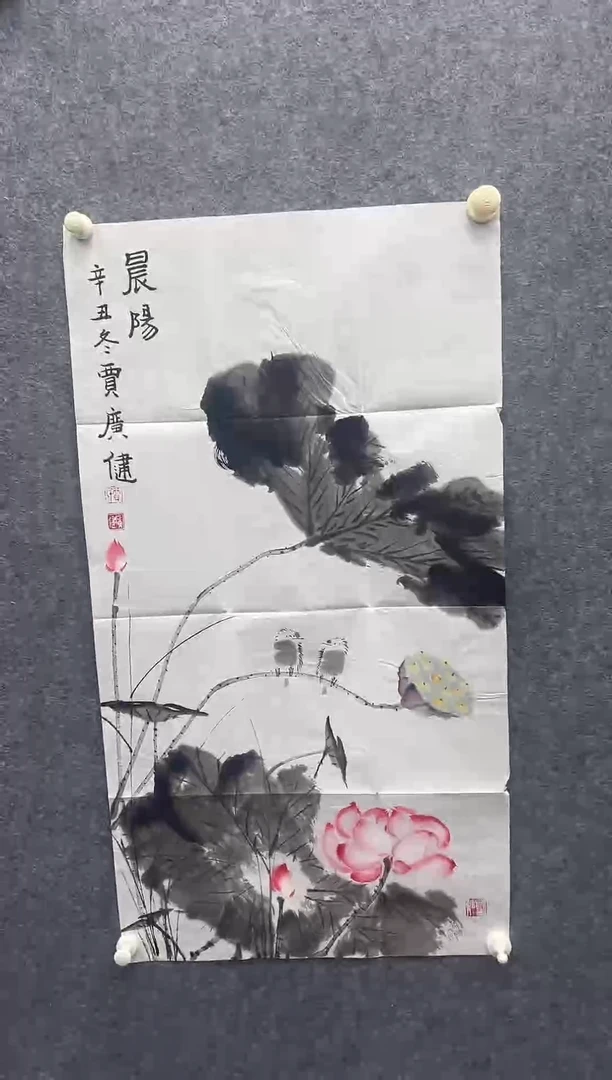 晨陽
辛丑冬賈廣健